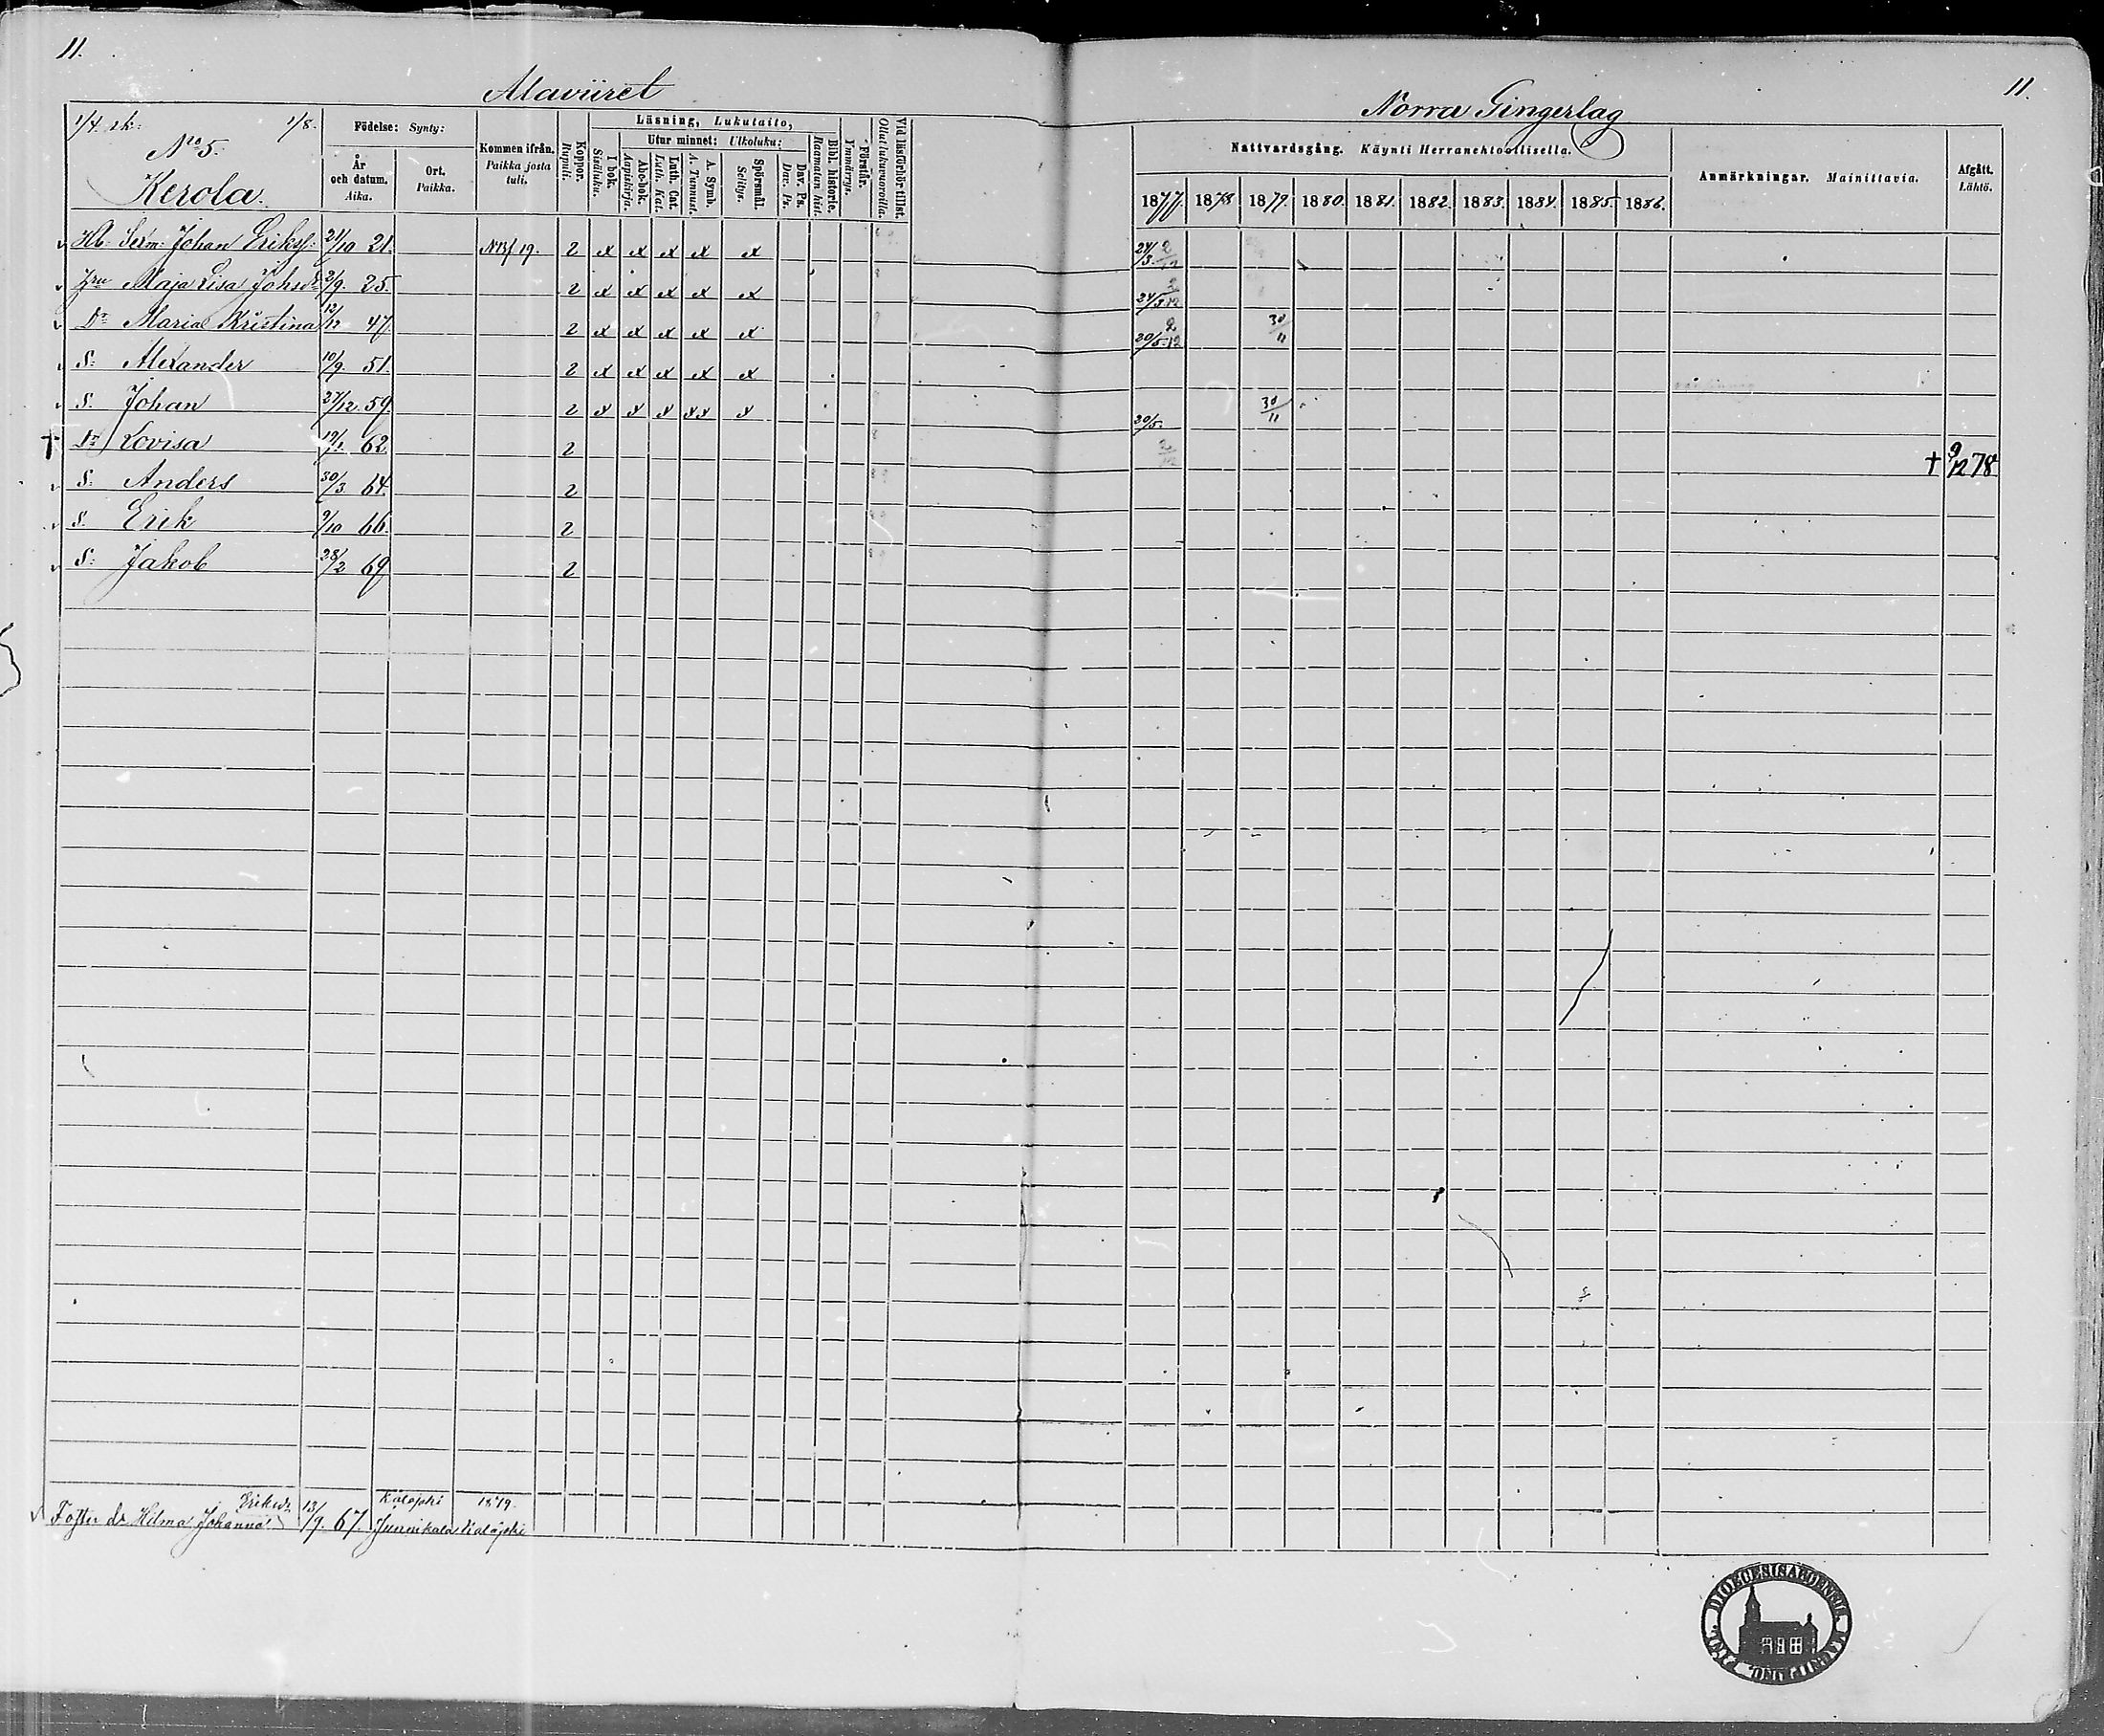 11.
11.
Alaviiret
Norra Gingerlag
1/4 sk: 1/8.
No 5.
Kerola.
Födelse: Synty:
År och datum. Aika.
Ort. Paikka.
Kommen ifrån. Paikka josta tuli.
Koppor. Rupuli.
Läsning, Lukutaito,
I bok. Sisäluku.
Utur minnet: Ulkoluku:
Abc-bok. Aapiskirja.
Luth. Cat. Luth. Kat.
A. Symb. A. Tunnust.
Spörsmål. Selitys.
Dav. Ps. Dav. Ps.
Bibl. historie. Raamatun hist.
Förstår. Ymmärrys.
Vid läsförhör tillst. Ollut lukuvuoroilla.
Nattvardsgång. Käynti Herranehtoollisella.
1877. 1878 1879. 1880. 1881. 1882. 1883. 1884. 1885. 1886.
Anmärkningar. Mainittavia.
Afgått. Lähtö.
Johan Erikss: 21/10 21. 19. 2 x x x x x 24/3 2/12
Maja Lisa Johsdr 2/9. 25. 2 x x x x x 24/3 2/12
Dr Maria Kristina 12/12 47. 2 x x x x x 20/5 2/12 30/11
S: Alexander 10/9. 51. 2 x x x x x
S. Johan 27/12 59. 2 x x x x x x 20/5. 30/11
† Dr Lovisa 19/1. 62. 2 2/12 † 9/12 78
S: Anders 30/3. 64. 2
S. Erik 9/10 66. 2
S: Jakob 28/2 69 2
Foster dr Hilma Johanna Eriksdr 13/9. 67. 1879.
DIOECESIS ABOENSIS